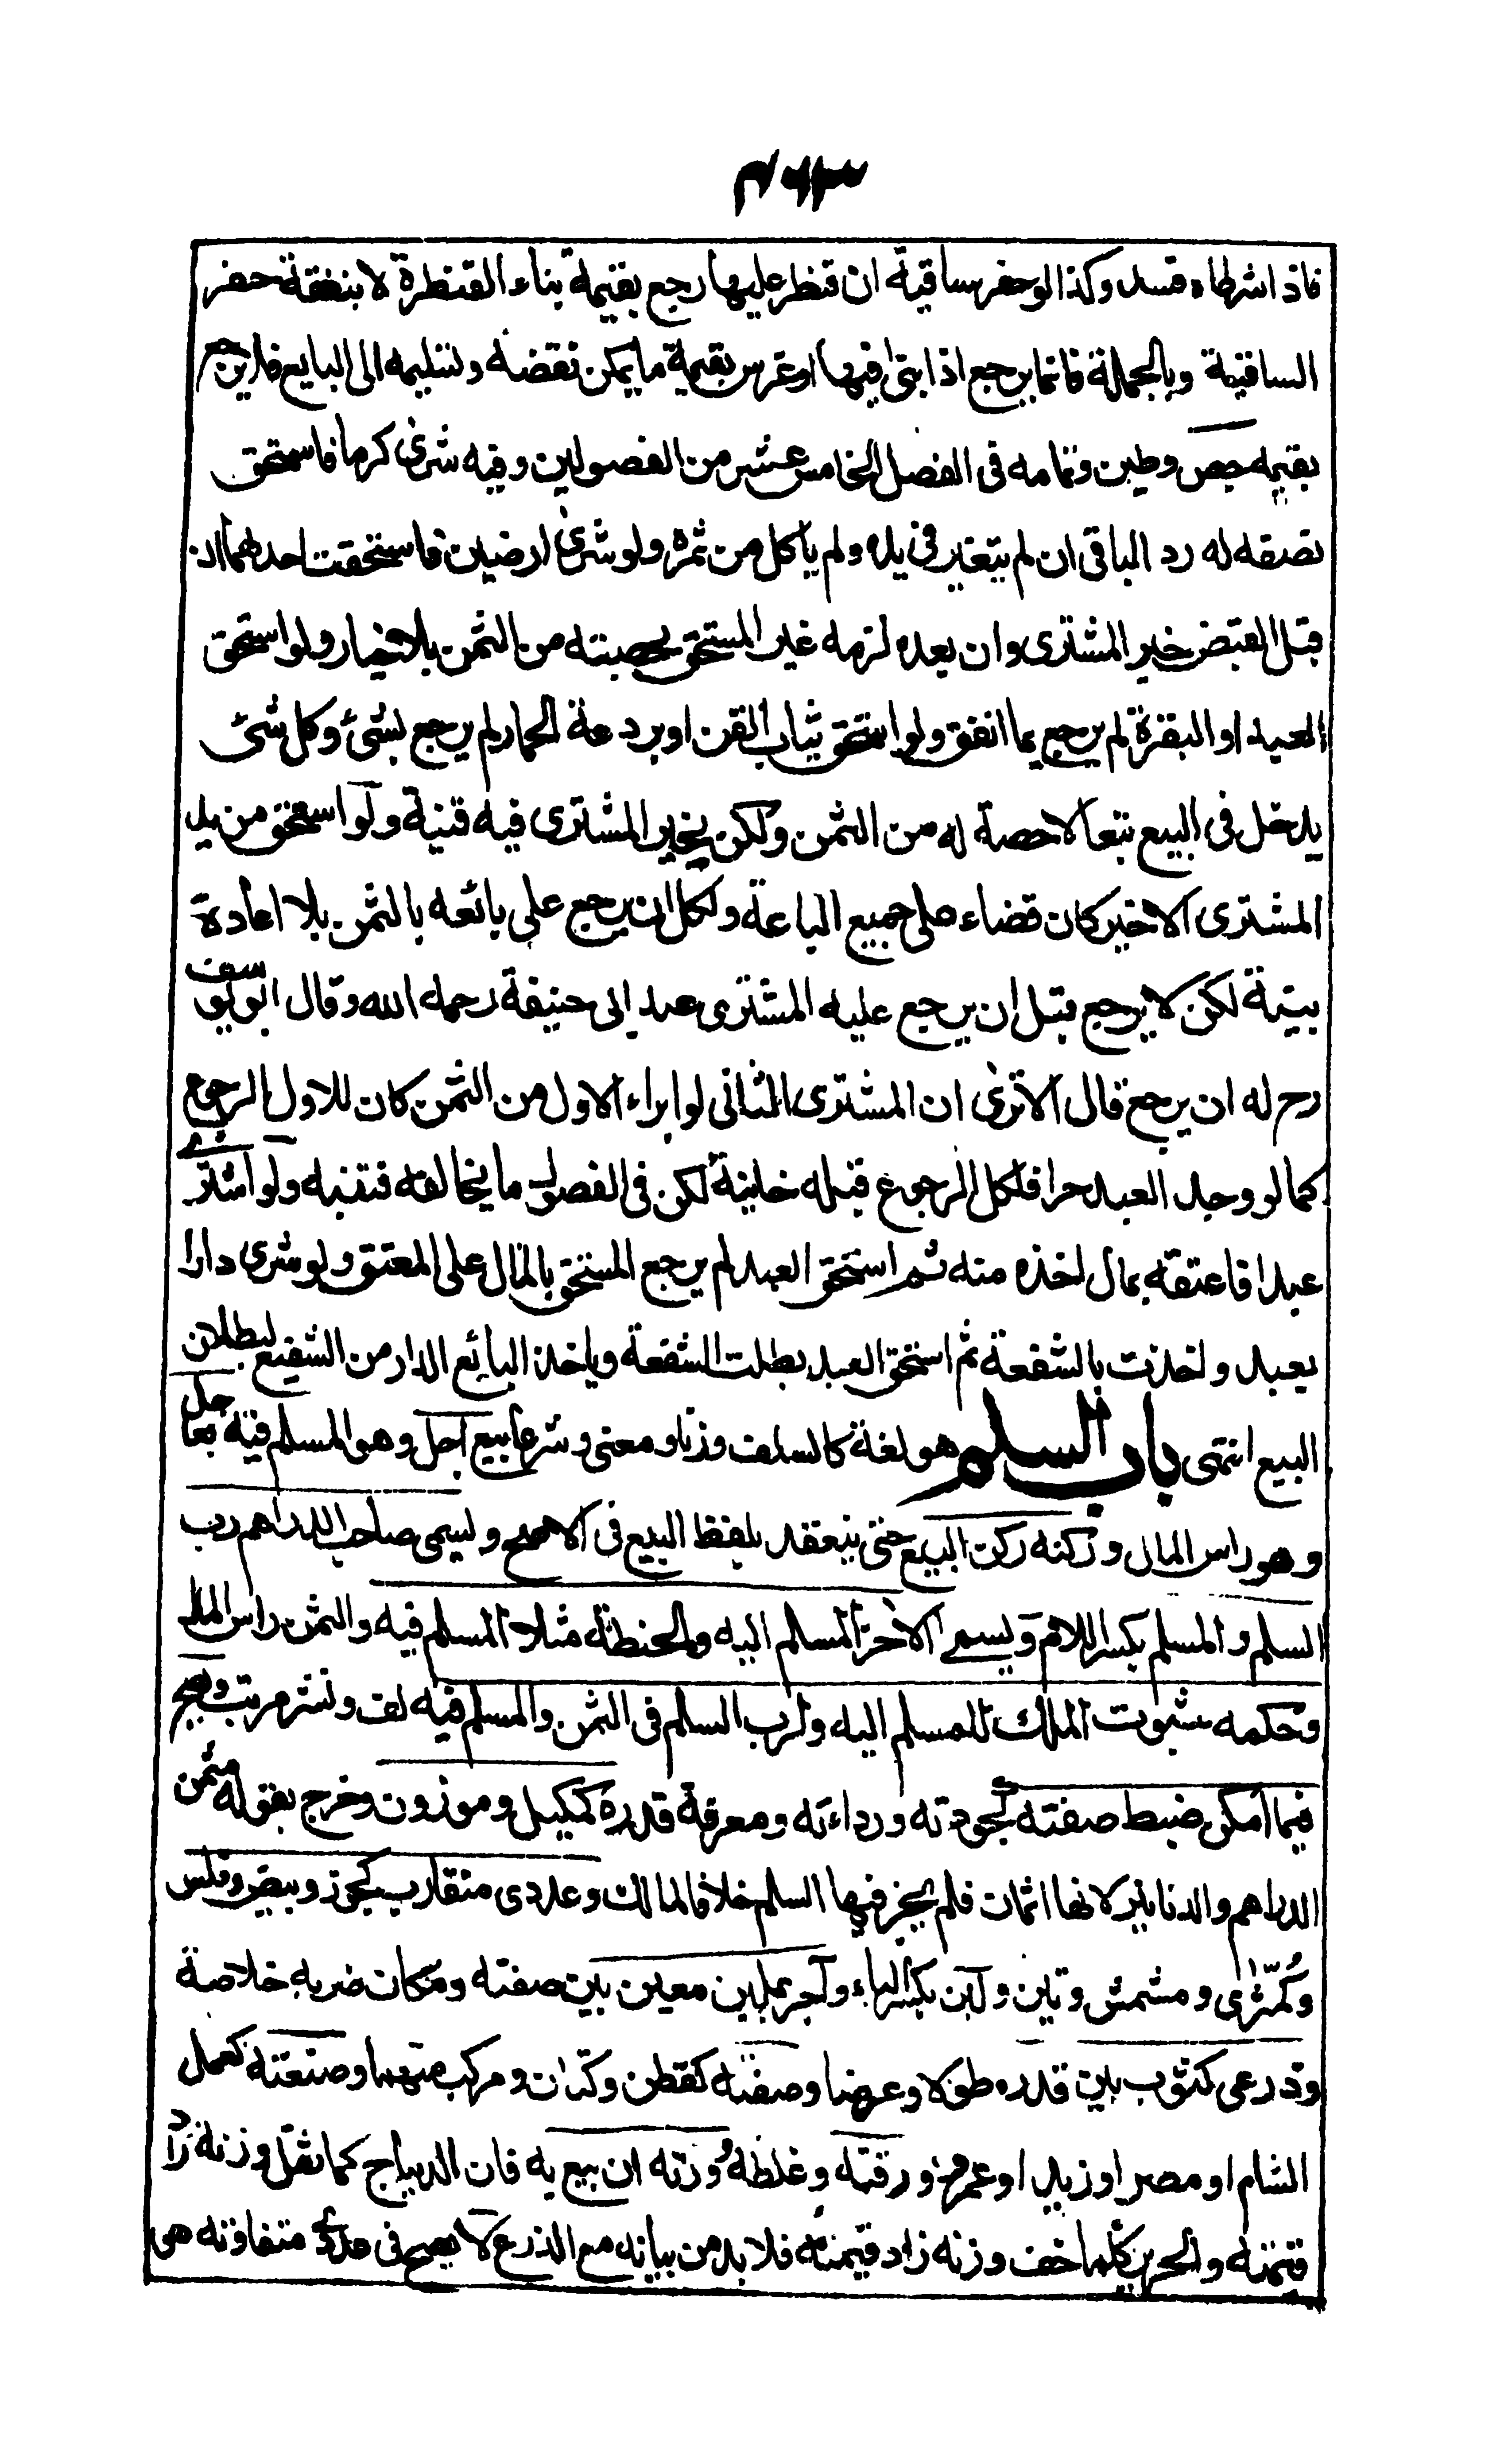 فاذا شرطاه فسد وكذا لو حفر ساقية ان قنطر عليها رجع بقيمة بناء القنطرة لا بنفقة حفر
الساقية وبالجملة فانما يرجع اذا بنى فيها او غرس بقيمة ما يمكن نقضه وتسليمه الى البايع فلا يرجع
بقيمه جص وطين وتمامه فى الفصل الخامس عشر من الفصولين وفيه شرى كرما فاستحق
نصفه له رد الباقى ان لم يتغير فى يده ولم ياكل من ثمره ولو شرى ارضين فاستحقت احدهما ان
قبل القبض خير المشترى وان بعده لزمه غير المستحق بحصته من الثمن بلا خيار ولو استحق
العبد او البقرة لم يرجع بما انفق ولو استحق ثياب القن او بردعة الحمار لم يرجع بشئ وكل شئ
يدخل فى البيع تبعا لا حصة له من الثمن ولكن يخير المشترى فيه قنية ولو استحق من يد
المشترى الاخير كان قضاء على جميع الباعة ولكل ان يرجع على بائعه بالثمن بلا اعادة
بينة لكن لا يرجع قبل ان يرجع عليه المشترى عند ابى حنيفة رحمه الله وقال ابو يوسف
رح له ان يرجع قال الا ترى ان المشترى الثانى لو ابراء الاول من الثمن كان للاول الرجوع
كما لو وجد العبد حرا فلكل الرجوع قبله خانية لكن فى الفصولين ما يخالفه فتنبه ولو اشترى
عبدا فاعتقه بمال اخذه منه ثم استحق العبد لم يرجع المستحق بالمال على المعتق ولو شرى دارا
بعبد واخذت بالشفعة ثم استحق العبد بطلت الشفعة وياخذ البائع الدار من الشفيع لبطلان
البيع انتهى باب السلم هو لغة كالسلف وزنا ومعنى وشرعا بيع اجل وهو المسلم فيه بعاجل
وهو راس المال وركنه ركن البيع حتى ينعقد بلفظ البيع فى الاصح ويسمى صاحب الدراهم رب
السلم والمسلم بكسر اللام ويسمى الاخر المسلم اليه والحنطة مثلا المسلم فيه والثمن راس المال
وحكمه ثبوت الملك للمسلم اليه ولرب السلم فى الثمن والمسلم فيه لف ونشر مرتب ويصح
فيما امكن ضبط صفته كجودته ورداءته ومعرفة قدره كمكيل وموزون وخرج بقوله مثمن
الدراهم والدنانير لانها اثمان فلم يجز فيها السلم خلافا لمالك وعددى متقارب كجوز وبيض وفلس
وكمثرى ومشمش وتين ولبن بكسر الباء وآجر بملبن معين بين صفته ومكان ضربه خلاصة
وذرعى كثوب بين قدره طولا وعرضا وصفته كقطن وكتان ومركب منهما وصنعته كعمل
الشام او مصر او زيد او عمرو ورقته وغلظه ووزنه ان بيع به فان الديباج كما ثقل وزنه زاد
قيمته والحرير كلما خف وزنه زاد قيمته فلا بد من بيانه مع الذرع لا يصح فى عددى متفاوته هى